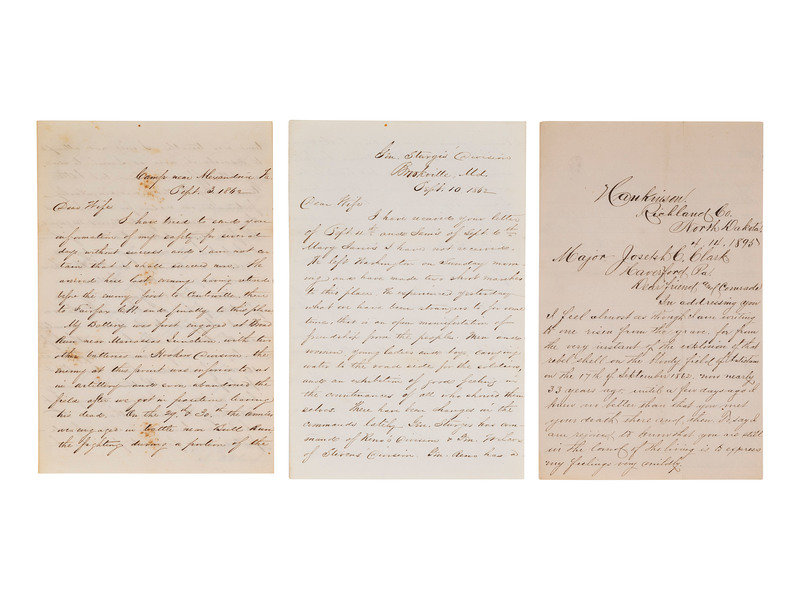 Camp near Alexandria Va
Sept. 3. 1862
Dear Wife
I have tried to send you
information of my safety for several
days without success and I am not
certain that I shall succeed now. We
arrived here last evening having retired
before the enemy first to Centreville then
to Fairfax C.H. and finally to this place
My Battery was first engaged at
near Manassas Junction with two
other batteries in Hookers Division. The
enemy at this point was inferior to us
in artillery and soon abandoned the
field after we got in position leaving
his dead. On the 29 & 30th the armies
were engaged in battle near Bull Run
the fighting during a portion of the
Gen. Sturgis' Division
Brookville, Md.
Sept. 10 1862
Dear Wife
I have received your letter
of Sept 4th and of Sept 6th
Mary I have not received.
We left Washington on Sunday morn-
ing and have made two short marches
to this place. We experienced yesterday
what we have been strangers to for some
time, this is an open manifestation of
friendship from the people. Men and
women young ladies and boys carrying
water to the road side for the soldiers,
and an exhibition of good feeling in
the countenances of all who showed them
selves. There have been changes in the
commands lately. Gen. Sturgis has com-
mand of Reno's Division & Gen. Wilcox
of Stevens Division. Gen. Reno has a
Hankinson,
Richland Co.
North Dakota
14. 1895
Major Joseph C. Clark
Haverford, Pa.
Dear friend, and Comrade
In addressing you
I feel almost as though I am writing
to one risen from the grave, for from
the very instant of the explosion of that
rebel shell on the bloody field of Antietam
on the 17th of September 1862, now nearly
33 years ago until a few days ago I
knew no better than that you met
your death there and then. To say I
am rejoiced to know that you are still
in the land of the living is to express
my feelings very mildly.